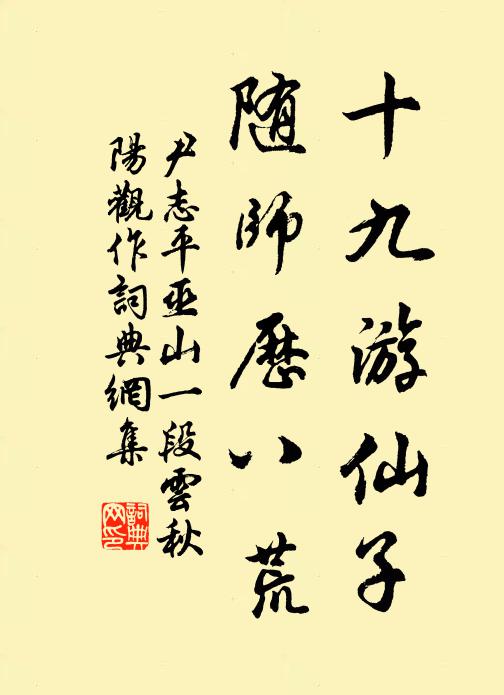 十九游仙子
随師歷八荒
尹志平巫山一段雲秋
陽觀作詞典網集
詞典
网印